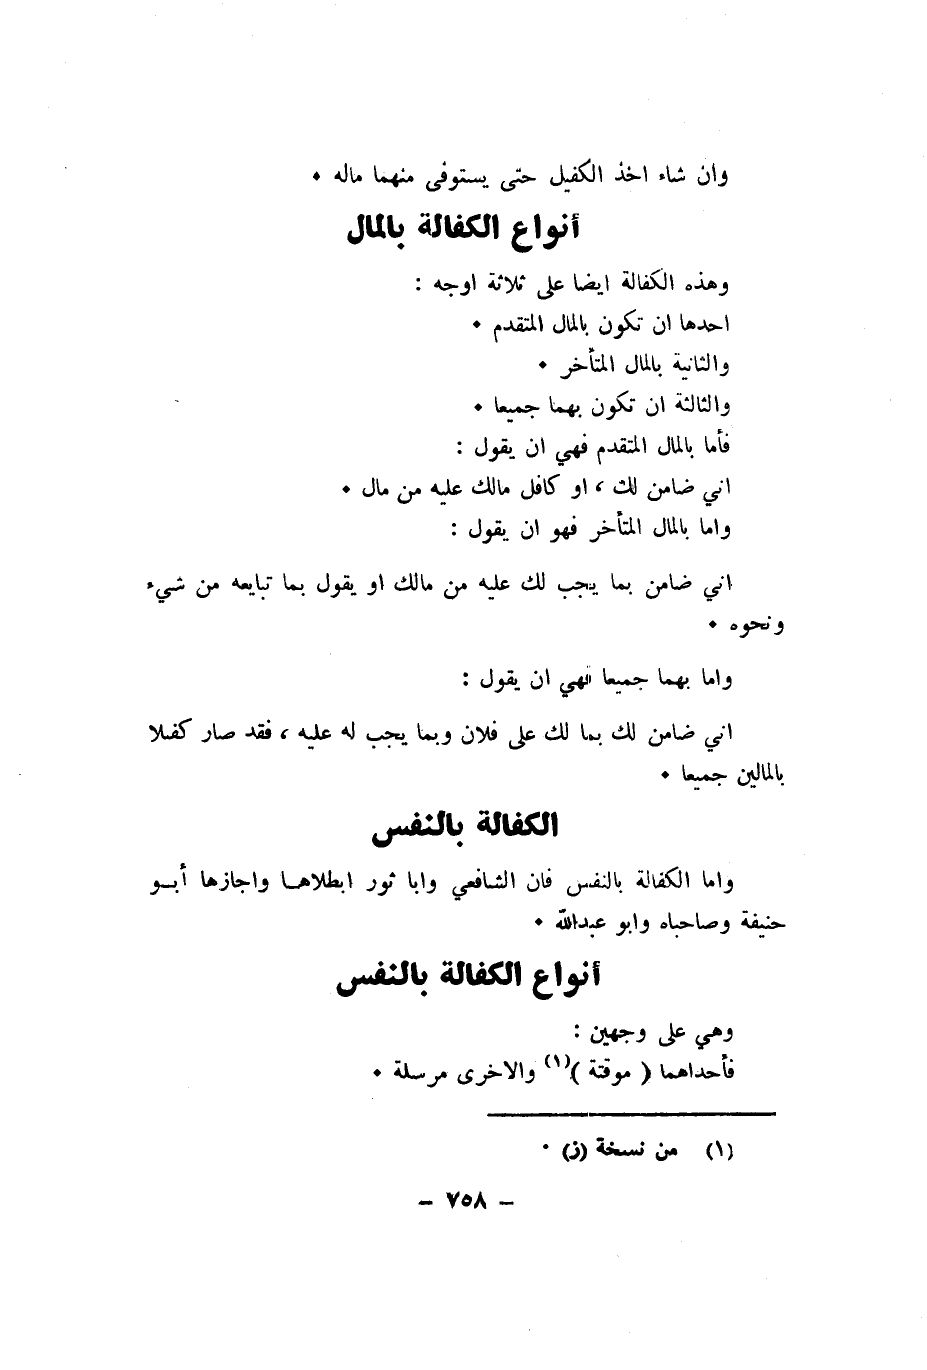 وان شاء اخذ الكفيل حتى يستوفى منهما ماله •
أنواع الكفالة بالمال
وهذه الكفالة ايضا على ثلاثة اوجه :
احدها ان تكون بالمال المتقدم •
والثانية بالمال المتأخر •
والثالثة ان تكون بهما جميعا •
فأما بالمال المتقدم فهي ان يقول :
اني ضامن لك ، او كافل مالك عليه من مال •
واما بالمال المتأخر فهو ان يقول :
اني ضامن بما يجب لك عليه من مالك او يقول بما تبايعه من شيء
ونحوه •
واما بهما جميعا فهي ان يقول :
اني ضامن لك بما لك على فلان وبما يجب له عليه ، فقد صار كفلا
بالمالين جميعا •
الكفالة بالنفس
واما الكفالة بالنفس فان الشافعي وابا ثور ابطلاهـا واجازها أبـو
حنيفة وصاحباه وابو عبدالله •
أنواع الكفالة بالنفس
وهي على وجهين :
فأحداهما ( موقتة )(١) والاخرى مرسلة •
(١) من نسخة (ز) •
– ٧٥٨ –